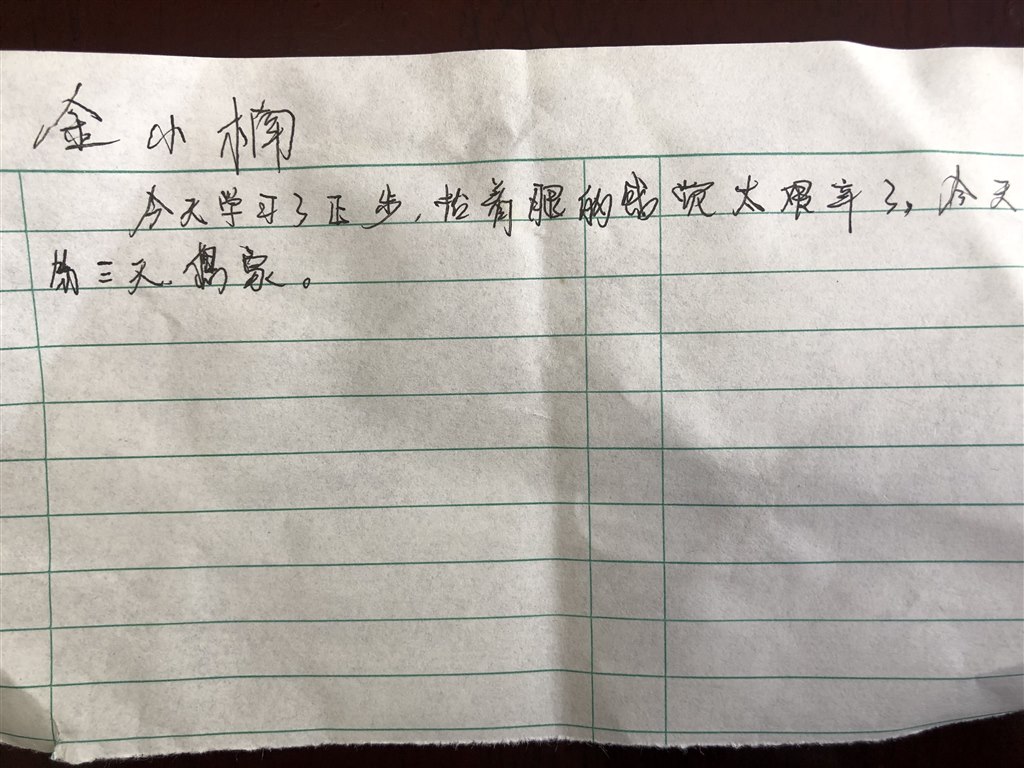 金小楠
今天学习了正步,抬着腿的感觉太艰辛了,今天
第三天,想家。